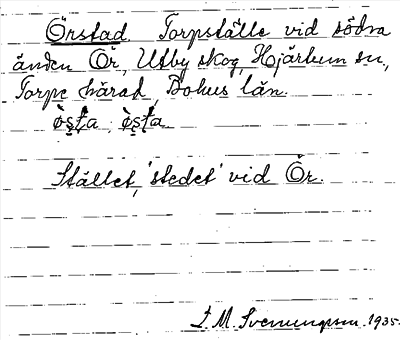 Örstad. Torpställe vid södra
änden Ör, Utby skog, Hjärtum sn,
Torpe härad, Bohus län.
ò̤sta, ò̤sta.
Stället, 'stedet' vid Ör.
S. M. Svenungsson. 1935.